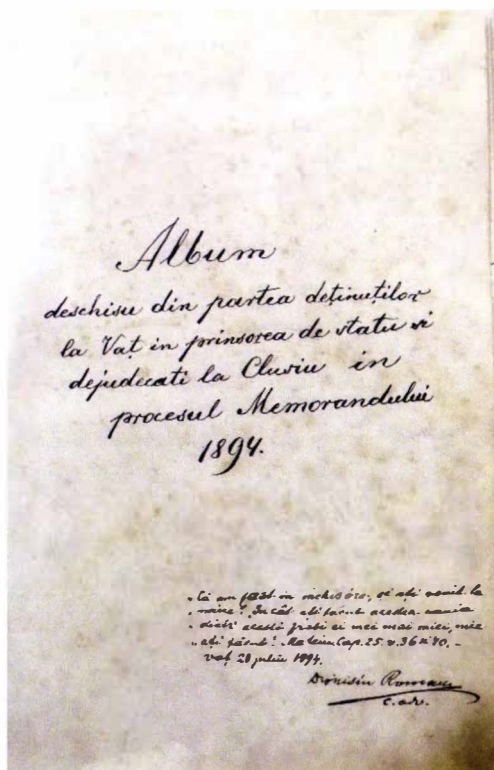 Album
deschisu din partea deținuților
la Vaț in prinsorea de statu si
dejudecati la Clusiu in
procesul Memorandului
1894.
Că am fost in inchisóre, și ați venit la
mine! Incât ați facut acestea
dintr' acesti frați ai mei mai mici, mie
ați facut! Mateiu Cap. 25. v. 36 si 40. -
Vaț 20 juliu 1894.
Dionisiu